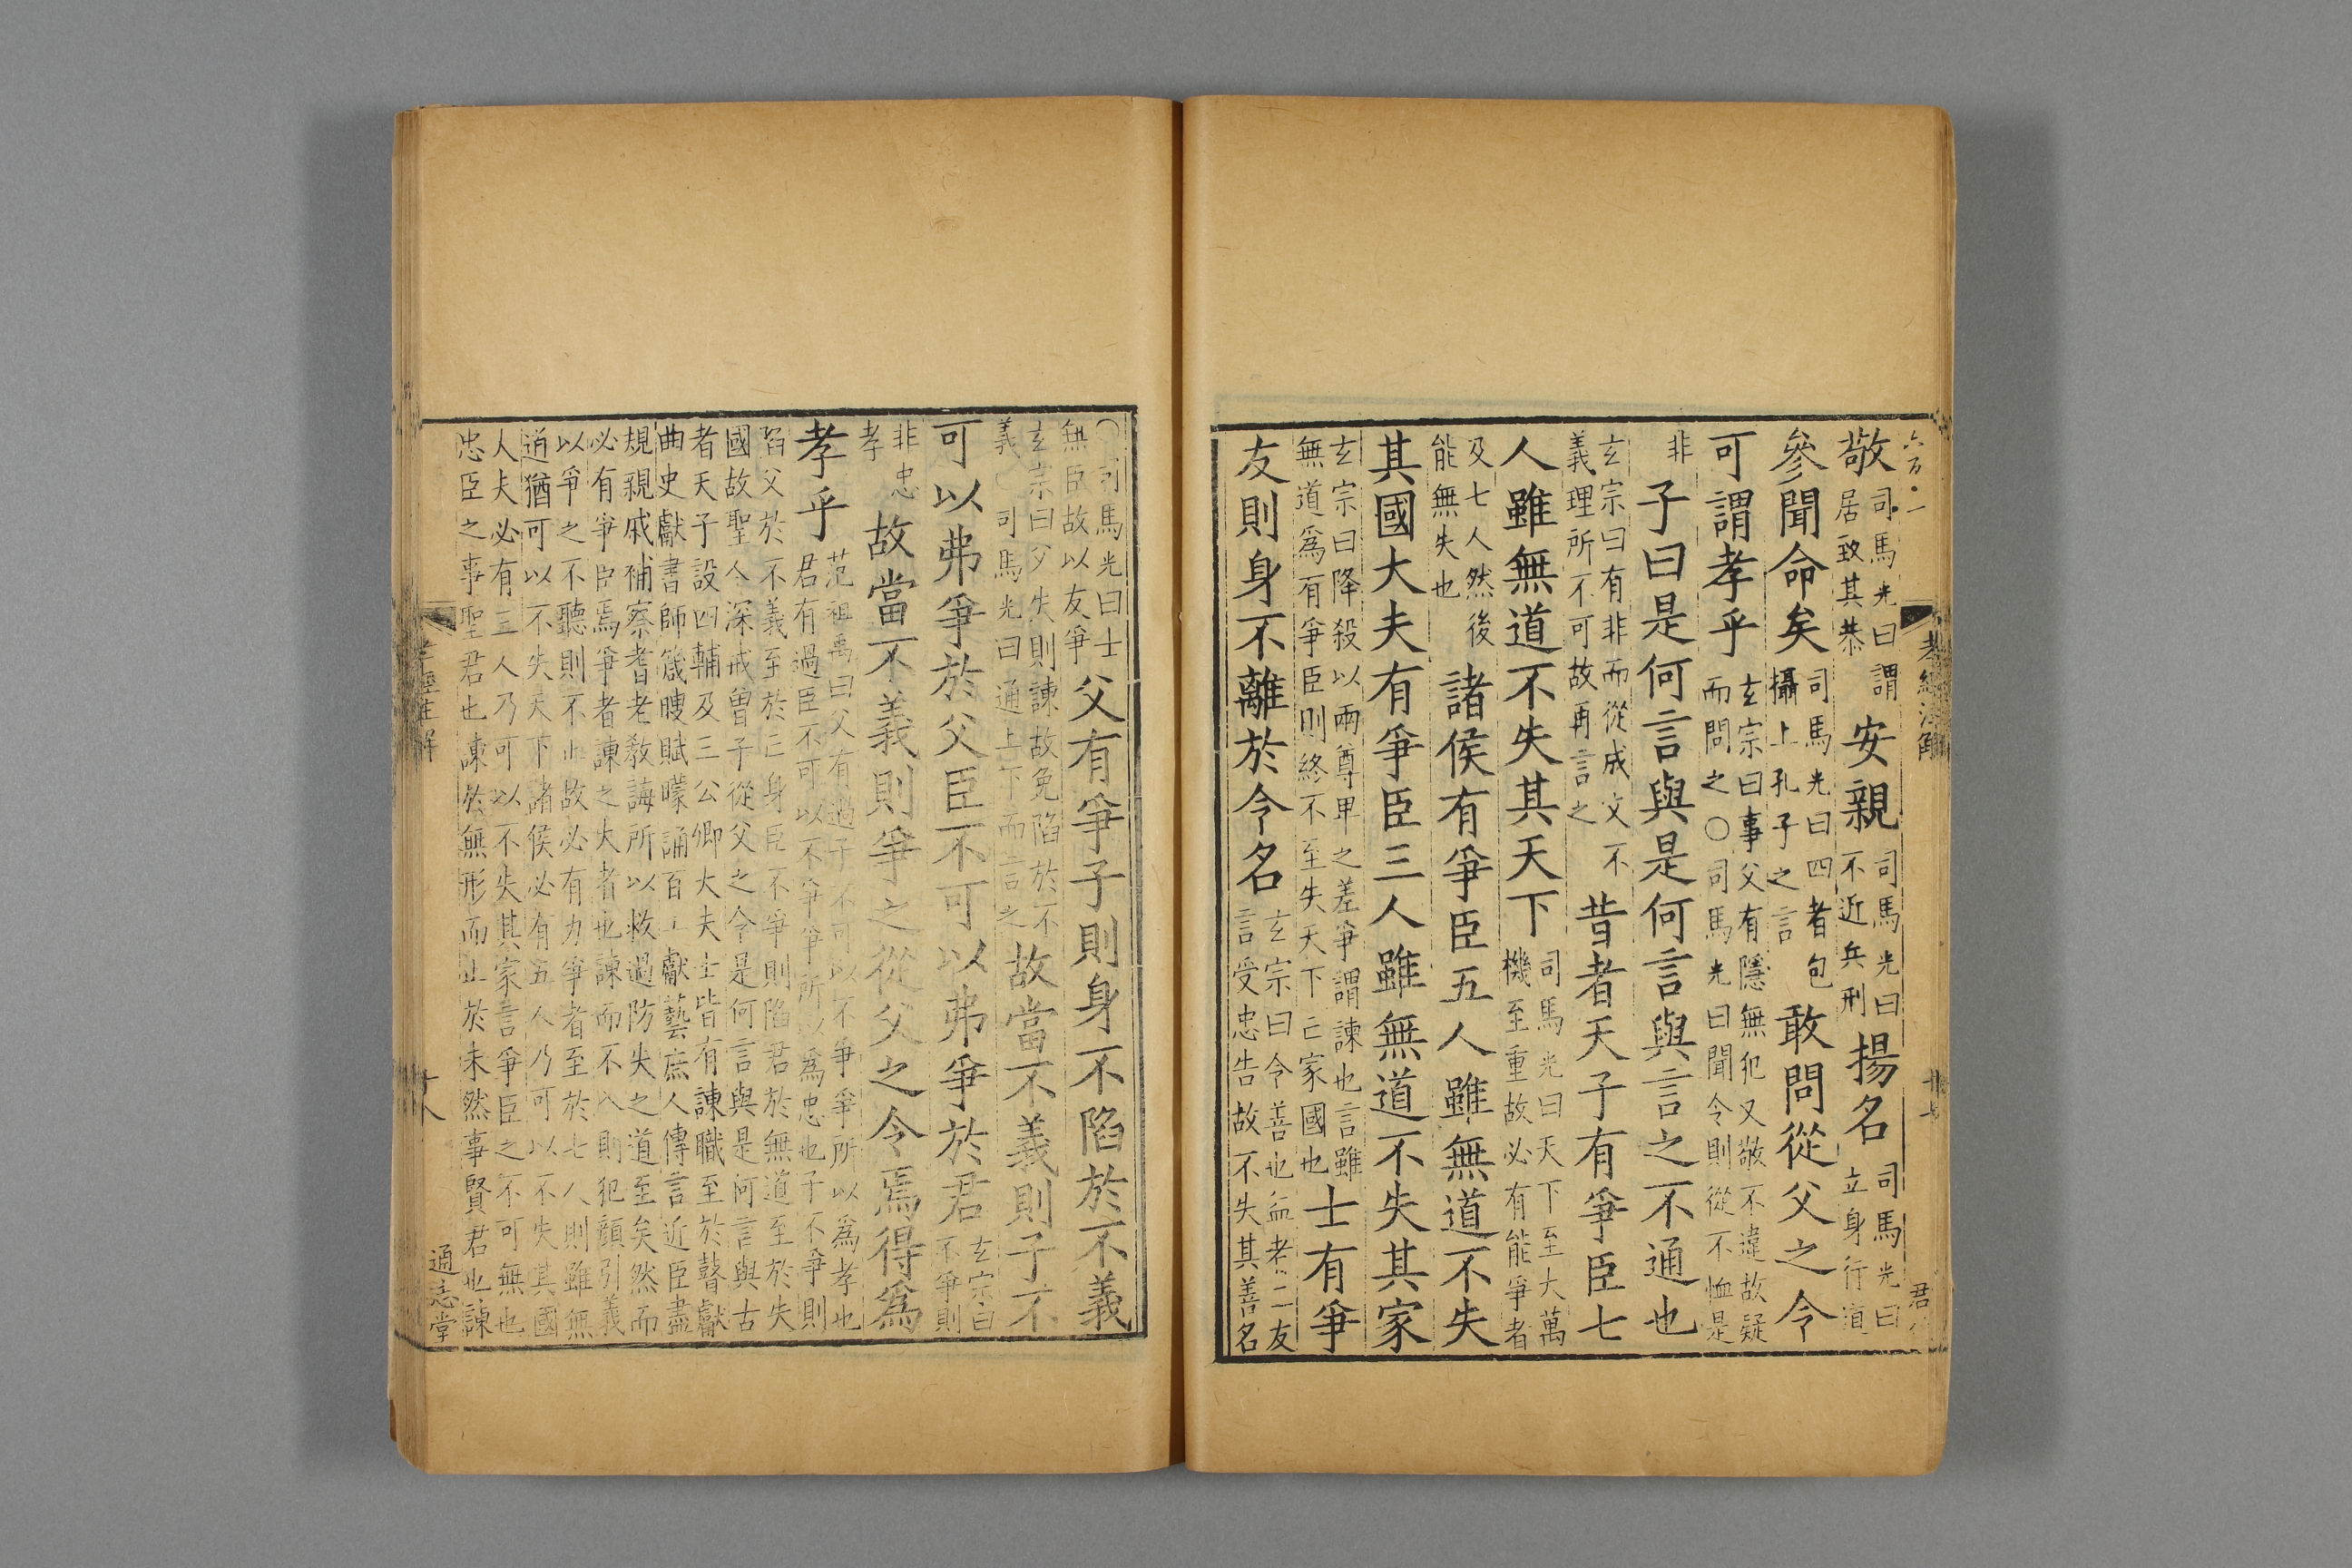 敬司馬光曰謂居致其恭安親司馬光曰不近兵刑揚名司馬光曰立身行道
參聞命矣司馬光曰四者包攝上孔子之言敢問從父之令
可謂孝乎玄宗曰事父有隱無犯又敬不違故疑而問之〇司馬光曰聞令則從不恤是
非子曰是何言與是何言與言之不通也
玄宗曰有非而從成父不義理所不可故再言之昔者天子有爭臣七
人雖無道不失其天下司馬光曰天下至大萬機至重故必有能爭者
及七人然後能無失也諸侯有爭臣五人雖無道不失
其國大夫有爭臣三人雖無道不失其家
玄宗曰降殺以兩尊卑之差爭謂諫也言雖無道為有爭臣則終不至失天下亡家國也士有爭
友則身不離於令名玄宗曰令善也益者三友言受忠告故不失其善名
〇司馬光曰士無臣故以友爭父有爭子則身不陷於不義
玄宗曰父失則諫故免陷於不義〇司馬光曰通上下而言之故當不義則子不
可以弗爭於父臣不可以弗爭於君玄宗曰不爭則
非忠孝故當不義則爭之從父之令焉得為
孝乎范祖禹曰父有過子不可以不爭爭所以為孝也君有過臣不可以不爭爭所以為忠也子不爭則
陷父於不義至於亡身臣不爭則陷君於無道至於失
國故聖人深戒曾子從父之令是何言與是何言與古
者天子設四輔及三公卿大夫士皆有諫職至於瞽獻
曲史獻書師箴瞍賦矇誦百工獻藝庶人傳言近臣盡
規親戚補察耆老教誨所以救過防失之道至矣然而
必有爭臣焉爭者諫之大者也諫而不入則犯顏引義
以爭之不聽則不止故必有力爭者至於七人則雖無
道猶可以不失天下諸侯必有五人乃可以不失其國
人夫必有三人乃可以不失其家言爭臣之不可無也
忠臣之事聖君也諫於無形而止於未然事賢君也諫
孝經注解
十八
通志堂